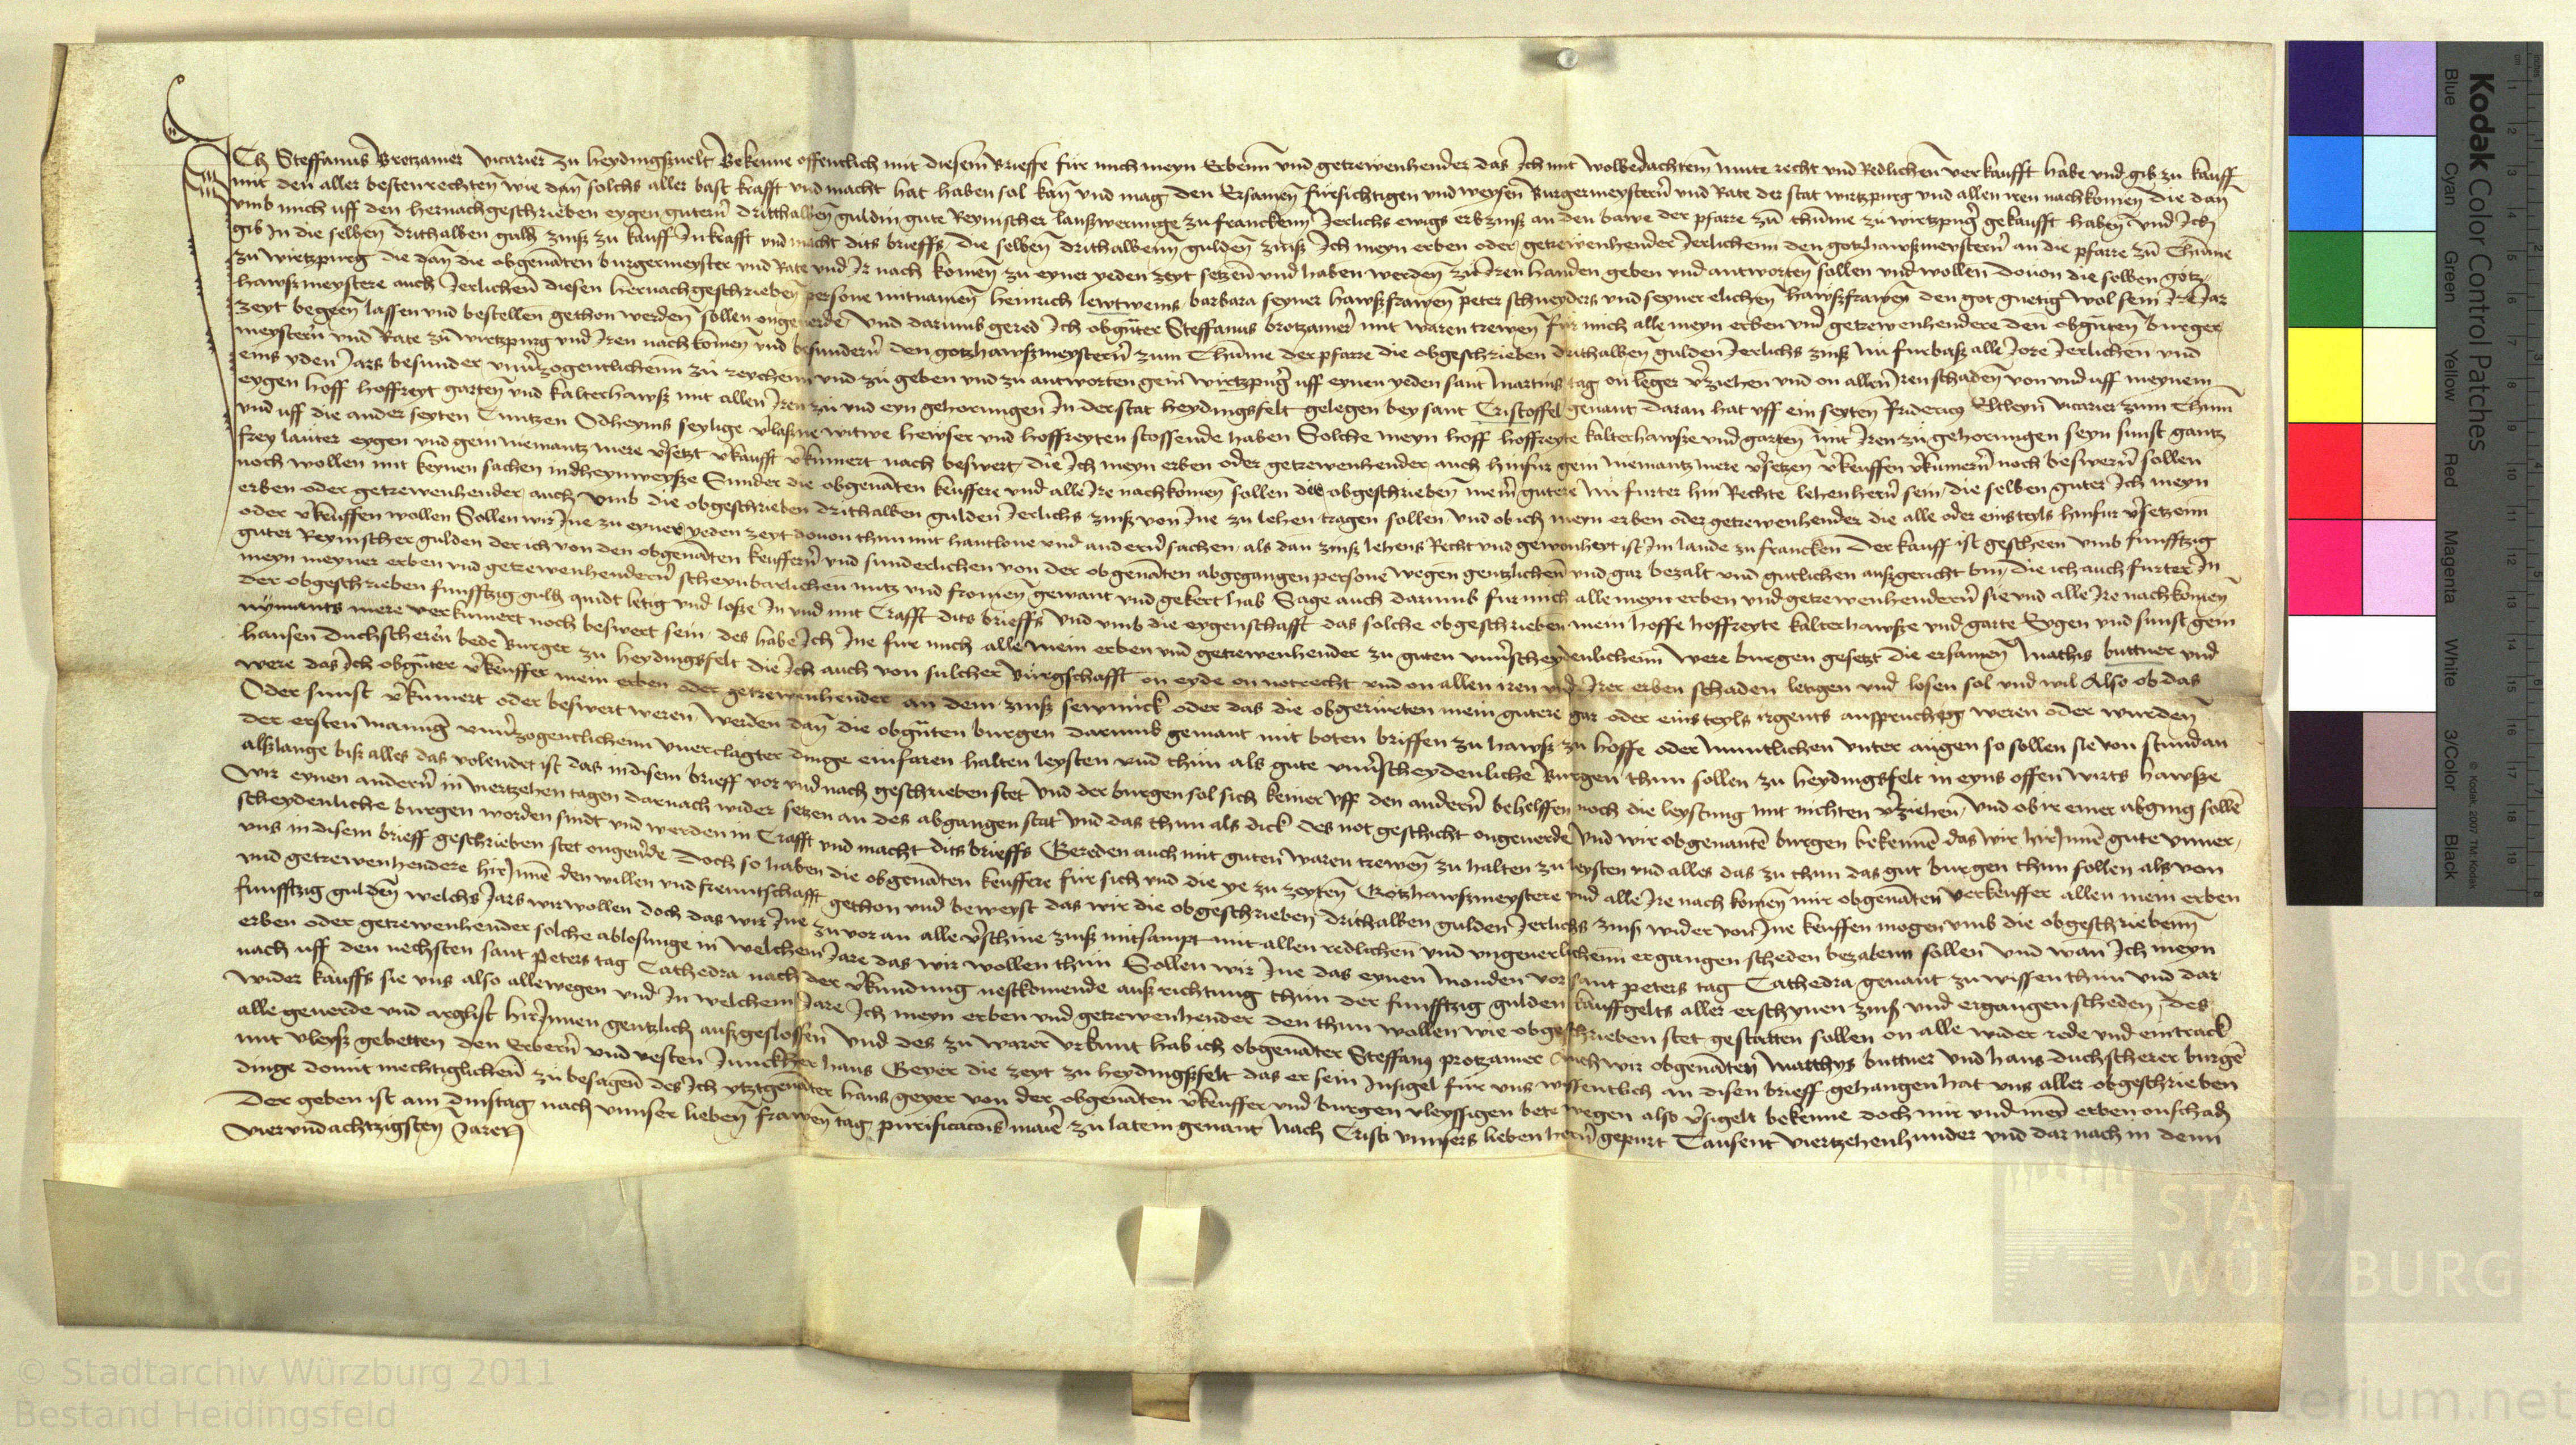 ICh Steffanus Brotzamer vicarier zu heydingsvelt Bekenne offentlich mit diesem Brieffe für mich meyn Erbenn und getrewenhender das Ich mit wolbedachtem mute recht und Redlichen verkaufft habe und gib zu kauff
mit den aller besten rechten wie dan solchs aller bast krafft und macht hat haben sol kan und mag den Ersamen fursichtigen und weysen Burgermeystern und Rate der stat wirtzpurg und allen iren nachkomen die dan
umb mich uff den hernachgeschrieben eygen gutern dritthalben guldin gute Reynischer lanßwerunge zu franckenn Jerlichs ewigs erbzinß an den bawe der pfarre zu thume zu wirtzpurg gekaufft haben und Ich
gib In die selben drithalben guld zinß zu kauff In krafft und macht dits brieffs die selben drithalbenn gulden zinß Ich meyn erben oder getrewenhender Jerlichenn den gotzhawßmeystern an die pfarre zu Thume
zu wirtzpurg die dan die obgenaten burgermeyster und Rate und Ir nach komen zu eyner yeden zeyt setzen und haben werden zu Iren handen geben und antworten sollen und wollen douon die selben gotz
hawßmeystere auch Jerlichen diesen hernachgeschrieben persone mitnamen heinrich lewtweins barbara seyner hawßfrawen peter schneyders und seyner elichen hawßfrawen den got gnetig wol sein Ire Jar
zeyt begeen lassen und bestellen gethon werden sollen ongeuerde und darumb gered Ich obguter Steffanus brotzamer mit waren trewen für mich alle meyn erben und getrewenhendere den obguten burger
meystern und Rate zu wirtzpurg und Iren nach komen und besundern den gotzhawßmeystern zum Thume der pfarre die obgeschrieben drithalben gulden Jerlichs zinß nu furbaß alle Jore Jerlichen und
eins yden Jars besunder unuerzogentlichenn zu reychenn und zu geben und zu antworten gein wirtzpurg uff eynen yeden sant Martins tag on leger verziehen und on allen Iren schaden von und uff meynem
eygen hoff hoffreyt garten und kalterhawß mit allen Iren zu und eyn gehorungen In der stat heydingsfelt gelegen bey sant Cristoffel genant daran hat uff ein seyten fridericus vicarier zum Thum
und uff die ander seyten Cuntzen Odheyms seylige verlaßne witwe hewser und hoffreyten stossende haben Solche meyn hoff hoffreyte kalterhawße und garten mit Iren zu gehorungen seyn sunst gantz
frey lauter eygen und gein niemantz mere versetzt verkaufft verkumert nach beswert die Ich meyn erben oder getrewenhender auch hinfur gein niemantz mere versetzen verkeuffen verkumern noch beswern sollen
noch wollen mit keynen sachen indheynweyße Sunder die obgenaten keuffere und alle Ire nachkomen sollen die obgeschrieben mein gutere nu furter hin Rechte lehenhern sein die selben guter Ich meyn
erben oder getrewenhender auch umb die obgeschrieben drithalben gulden Jerlichs zinß von Ine zu lehen tragen sollen und ob ich meyn erben oder getrewenhender die alle oder einsteyls hinfur versetzenn
oder verkeuffen wollen Sollen wir Ine zu eyner yeden zeyt douon thun mit hantlone und andern sachen als dan zinß lehens Recht und gewonheyt ist Im lande zu francken Der kauff ist gescheen umb funfftzig
guter Reynischer gulden der ich von den obgenaten keuffern und sunderlichen von der obgenaten abgegangen persone wegen gentzlichen und gar bezalt und gutlichen außgericht bin die ich auch furter In
meyn meyner erben und getrewenhendern scheynbarlichen nutz und fromen gewant und gekert hab Sage auch darumb fur mich alle meyn erben und getrewenhendern sie und alle Ire nachkomen
der obgeschrieben funfftzig guld quidt letig und loße In und mit Crafft dits brieffs und umb die eygenschafft das solche obgeschrieben mein hoffe hoffreyte kalterhawße und garte Eygen und sunst gein
nymants mere verkumert noch beswert sein des habe Ich Ine fur mich alle mein erben und getrewenhender zu guten unuerscheydenlichenn were burgen gesetzt die ersamen Mathis buttner und
hansen duchscherern bede Burger zu heydingsfelt die Ich auch von sulcher burgschafft on eyde on notrecht und on allen iren und Irer erben schaden letigen und losen sol und wil Also ob das
were das Ich obguter verkeuffer mein erben oder getrewenhender an dem zinß sewmick oder das die obgerurten mein gutere gar oder eins teyls irgents anspruchig weren oder wurden
Oder sunst verkumert oder beswert weren werden dan die obguten burgen darumb gemant mit boten briffen zu hawß zu hoffe oder muntlichen unter augen so sollen sie von stundan
der ersten manung unuerzogentlichenn unerclagter dinge einfaren halten leysten und thun als gute unuerscheydenliche Burgen thun sollen zu heydingsfelt in eyns offen wirts hawße
alßlange biß alles das volendet ist das indisem brieff vor und nach geschrieben stet und der burgen sol sich keiner uff den andern behelffen noch die leystung mit nichten verziehen und ob ir einer abging sollen
wir eynen andern in viertzehen tagen darnach wider setzen an des abgangen stat und das thun als dick des not geschicht ongeuerde und wir obgenanten burgen bekennen das wir hirInnen gute unuer
scheydenliche burgen worden sindt und werden in Crafft und macht dits brieffs Gereden auch mit guten waren trewen zu halten zu leysten und alles das zu thun das gut burgen thun sollen als von
uns indisem brieff geschrieben stet ongeuerde Doch so haben die obgenaten keuffere für sich und die ye zu zeyten Gotzhawßmeystere und alle Ire nach komen mir obgenaten verkeuffer allen mein erben
und getrewenhendere hirInnen den willen und freuntschafft gethon und beweyst das wir die obgeschrieben drithalben gulden Jerlichs zinß wider von Ine keuffen mogen umb die obgeschriebenn
funfftzig gulden welchs Jars wir wollen doch das wir Ine zuvor an alle verschine zinß mitsampt mit allen redlichen und ungeuerlichenn ergangen scheden bezalenn sollen und wan Ich meyn
erben oder getrewenhender solche ablosunge in welchem Jare das wir wollen thun Sollen wir Ine das eynen monden vor sant peters tag Cathedra genant zu wissen thun und dar
nach uff den nechsten sant Peters tag Cathedra nach der verkundung nestkomende außrichtung thun der funfftzig gulden kauffgelts aller erschynen zinß und ergangen scheden des
wider kauffs sie uns also allewegen und In welchem Jare Ich meyn erben und getrewenhender den thun wollen wie obgeschrieben stet gestatten sollen on alle wider rede und eintrack
alle geuerde und arglist hirInnen gentzlich außgeslossen und des zu warer urkunt hab ich obgenater Steffanus protzamer auch wir obgenaten Matthys buttner und hans duchscherer burgen
mit vleyß gebetten den Erbern und vesten Junckher hans Geyer die zeyt zu heydingßfelt das er sein Insigel für uns wissentlich an disen brieff gehangen hat uns aller obgeschrieben
dinge domit mechtiglichen zu besagen des Ich ytztgenater hans geyer von der obgenaten verkeuffer und burgen vleyssigen bete wegen also versigelt bekenne doch mir und mein erben onschad
Der geben ist am Dinstag nach unnser lieben frawen tag purificacois marie zu latein genant Nach Cristi unnsers lieben hern gepurt Tausent viertzehenhunder und dar nach in denn
vierundachtzigsten Jaren
Kodak Color Control Patches
Blue Cyan Green Yellow Red Magenta White 3/Color Black
© Kodak, 2007 TM: Kodak
STADT
WÜRZBURG
© Stadtarchiv Würzburg 2011
Bestand Heidingsfeld
sterium.net